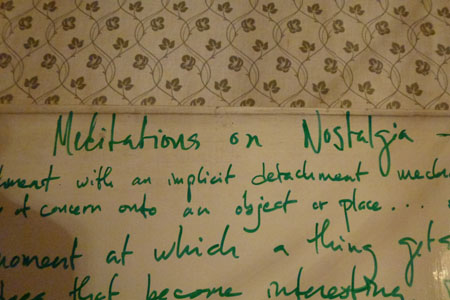 Meditations on Nostalgia –
with an implicit detachment
of concern onto an object or place...
moment at which a thing gets
that become interesting